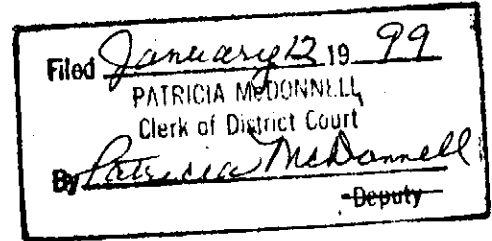 Filed January 12 19 99
PATRICIA McDONNELL
Clerk of District Court
By Patricia McDonnell
Deputy